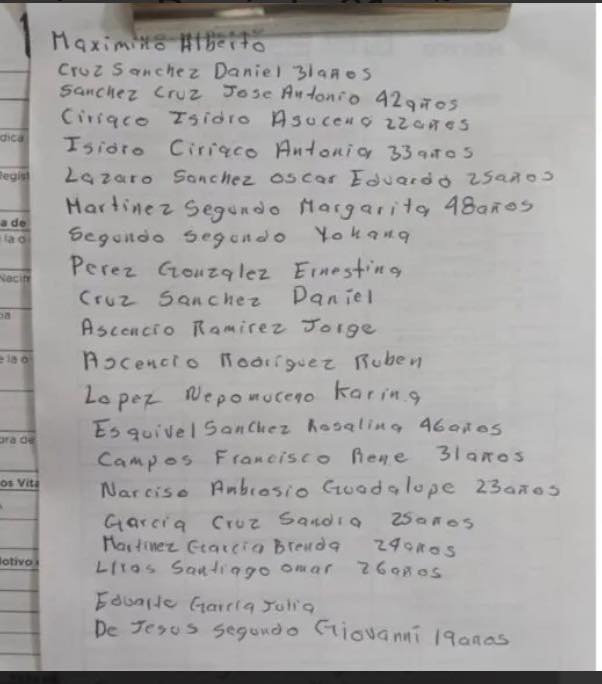 Maximino Alberto
Cruz Sanchez Daniel 31años
Sanchez Cruz Jose Antonio 42años
Ciriaco Isidro Asucena 22años
Isidro Ciriaco Antonia 33años
Lazaro Sanchez oscar Eduardo 25años
Martinez Segundo Margarita 48años
Segundo Segundo Yohana
Perez Gonzalez Ernestina
Cruz Sanchez Daniel
Ascencio Ramirez Jorge
Ascencio Rodriguez Ruben
Lopez Nepomuceno Karina
Esquivel Sanchez Rosalina 46años
Campos Francisco Rene 31años
Narciso Ambrosio Guadalupe 23años
Garcia Cruz Sandra 25años
Martinez Garcia Brenda 24años
Santiago omar 26años
Garcia Julia
De Jesus Segundo Giovanni 19años